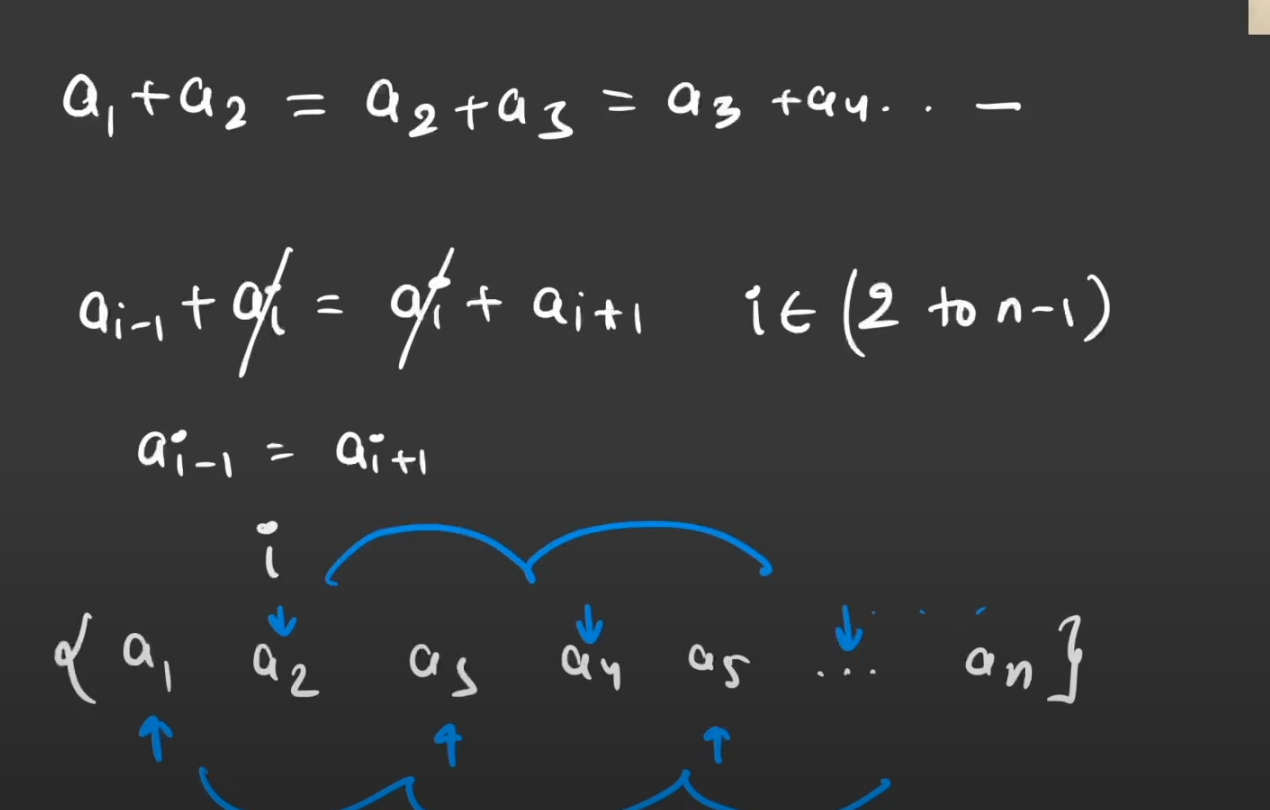 a₁ + a₂ = a₂ + a₃ = a₃ + a₄ . . . –
aᵢ₋₁ + aᵢ = aᵢ + aᵢ₊₁ i ∈ (2 to n-1)
aᵢ₋₁ = aᵢ₊₁
i
{ a₁ a₂ a₃ a₄ a₅ ... aₙ }